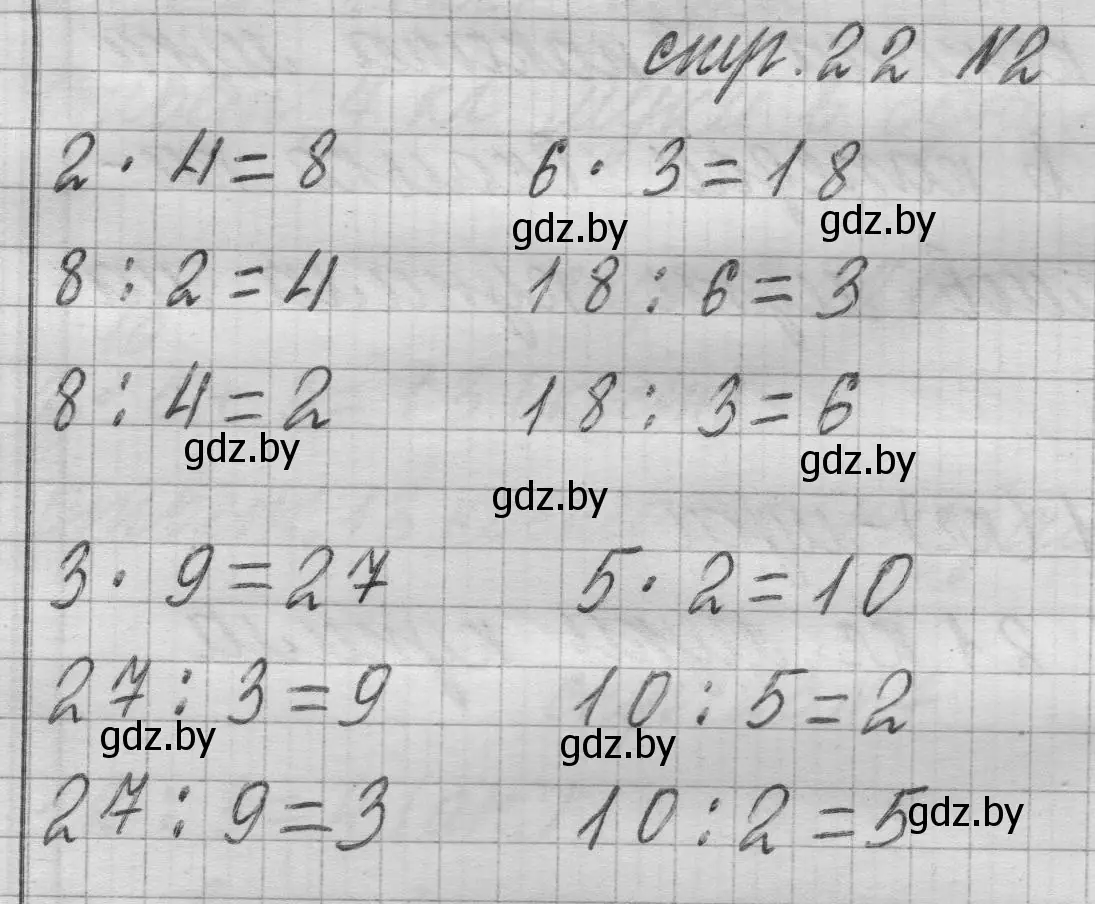 стр. 22 №2
2 · 4 = 8 6 · 3 = 18
gdz.by gdz.by
8 : 2 = 4 18 : 6 = 3
8 : 4 = 2 18 : 3 = 6
gdz.by gdz.by
gdz.by
3 · 9 = 27 5 · 2 = 10
27 : 3 = 9 10 : 5 = 2
gdz.by gdz.by
27 : 9 = 3 10 : 2 = 5
gdz.by